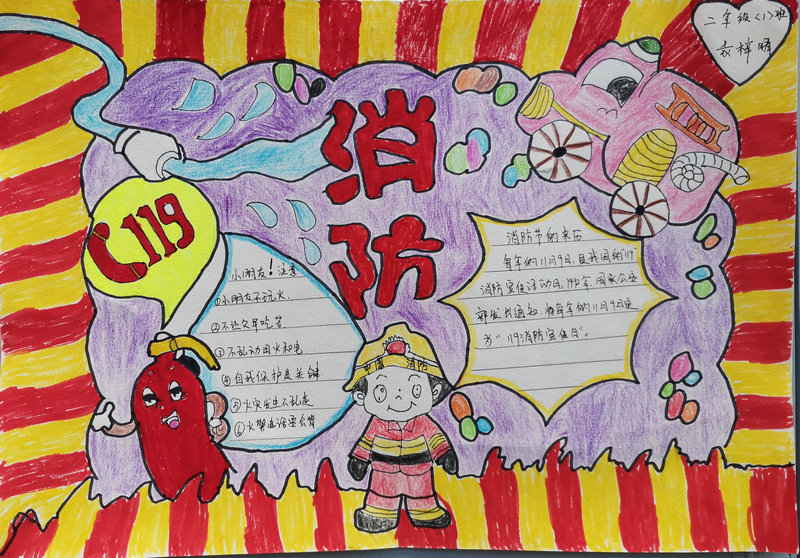 二年级(1)班
袁梓晴
消防
119
小朋友！注意
①小朋友不玩火
②不让父母吃苦
③不乱动用火和电
④自我保护是关键
⑤火灾发生不乱走
⑥火警电话要会背
消防节的来历
每年的11月9日是我国的"119
消防宣传活动日,1992年,国家公安
部发出通知,将每年的11月9日定
为"119消防宣传日"。
中国消防